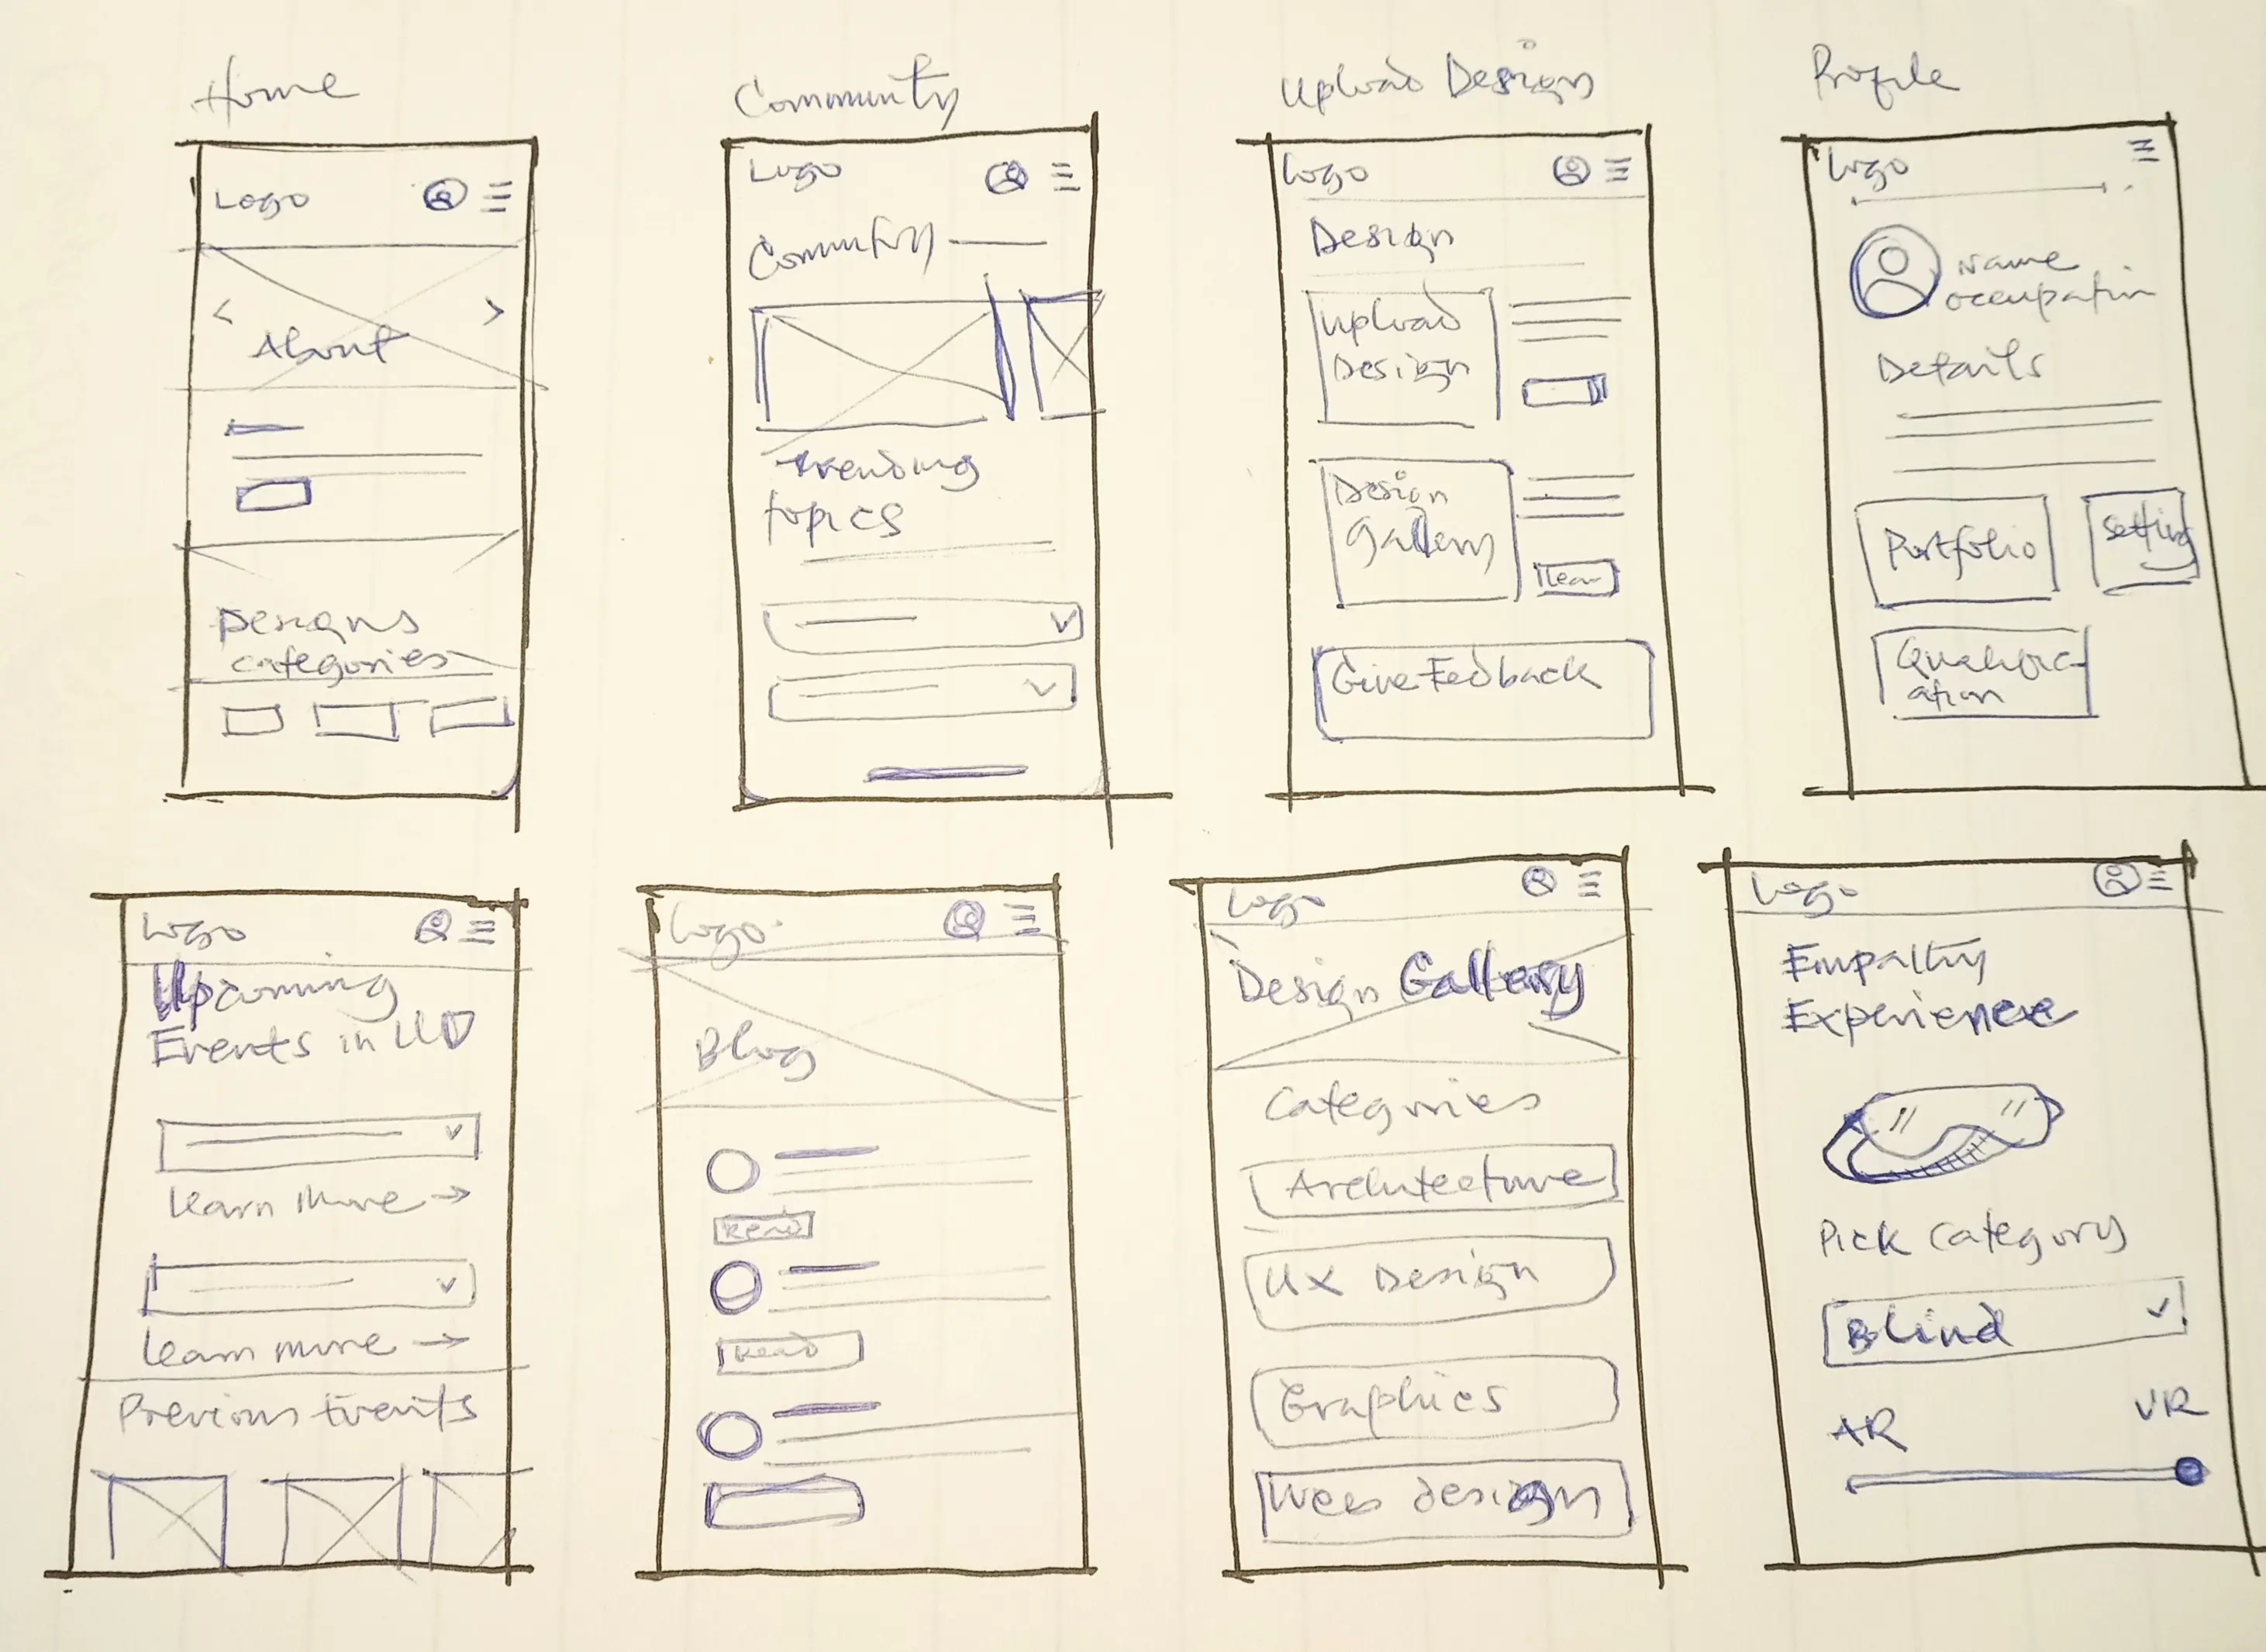 Home
Logo
About
Designs
categories
Community
Logo
Community
Trending
topics
Upload Design
Logo
Design
Upload
Design
Design
Gallery
Give Feedback
Profile
Logo
Name
occupation
Details
Portfolio
Setting
Qualific-
ation
Logo
Upcoming
Events in UD
Learn more →
Learn more →
Previous Events
Logo
Blog
Read
Read
Logo
Design Gallery
Categories
Architecture
UX Design
Graphics
Web design
Logo
Empathy
Experience
Pick Category
Blind
AR
VR